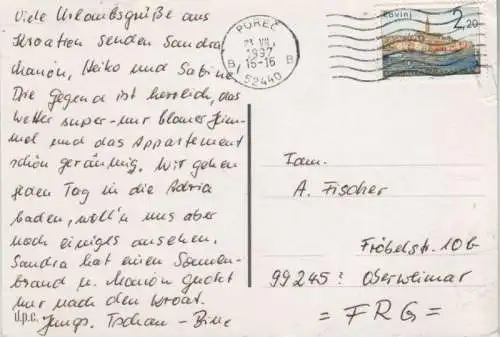 Viele Urlaubsgrüße aus
Kroatien senden Sandra
Marion, Heiko und Sabine
Die Gegend ist herrlich, das
Wetter super - nur blauer Him-
mel und das Appartement
schön geräumig. Wir gehen
jeden Tag in die Adria
baden, woll'n uns aber
noch einiges ansehen.
Sandra hat einen Sonnen-
brand u. Marion guckt
nur nach den kroat.
Jungs. Tschau -
d.p.c.
POREČ
1997
16-16
B B
52440
Rovinj
2,20
Fam.
A. Fischer
Fröbelstr. 10b
99245 Oberweimar
= FRG =